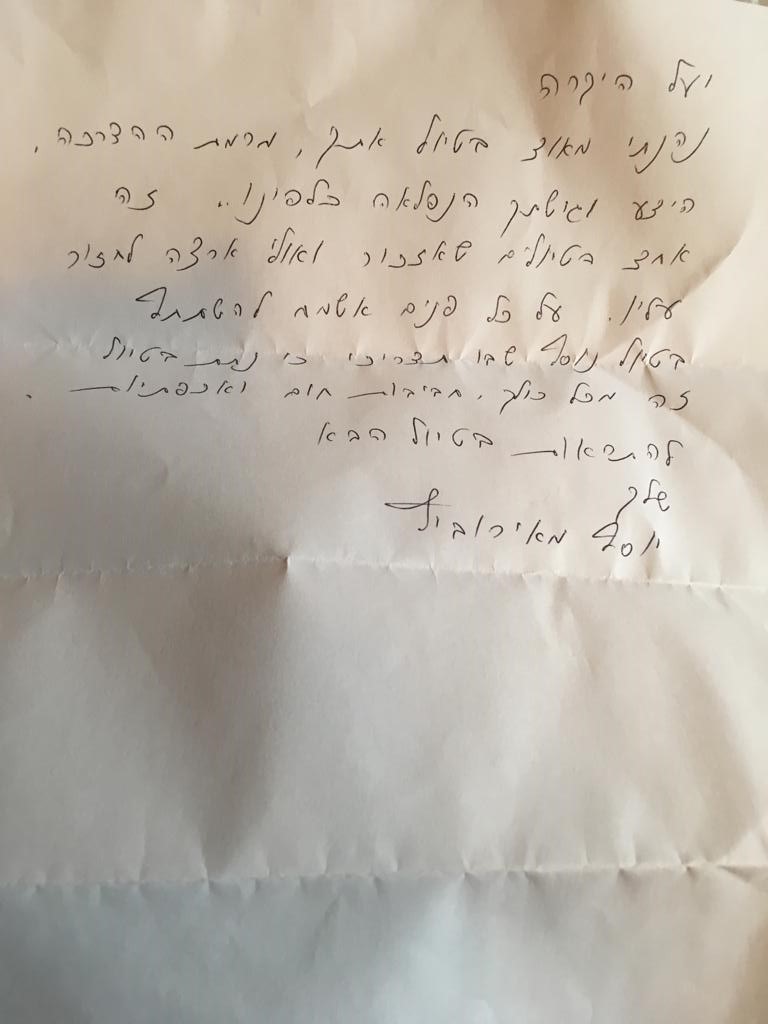 יעל היקרה
נהנתי מאוד בטיול אתך, מרמת ההדרכה,
הידע וגישתך הנפלאה כלפינו.. זה
אחד הטיולים שאזכור ואולי ארצה לחזור
עליו. על כל פנים אשמח להשתתף
בטיול נוסף שבו תדריכי כי נתת בטיול
זה מכל כולך, חביבות חום ואכפתיות.
להתראות בטיול הבא
שלך
יוסף מאירוביץ